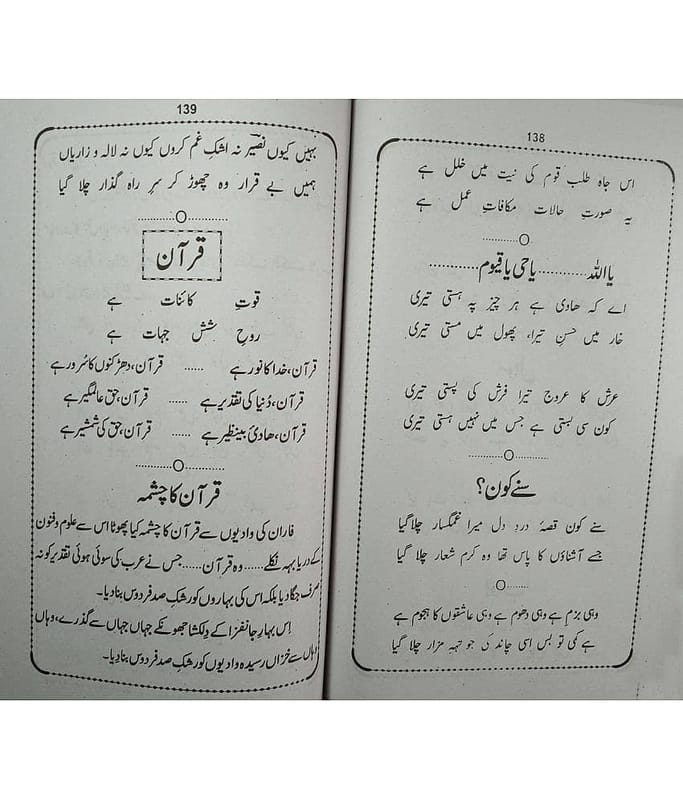 138
اس جاہ طلب قوم کی نیت میں خلل ہے
یہ صورتِ حالات مکافاتِ عمل ہے
............O............
یا اللہ...............یا حی یا قیوم...............
اے کہ حاوی ہے ہر چیز پہ ہستی تیری
خار میں حسن تیرا، پھول میں مستی تیری
عرش کا عروج تیرا فرش کی پستی تیری
کون سی بستی ہے جس میں نہیں ہستی تیری
............O............
سنے کون؟
سنے کون قصۂ دردِ دل میرا غمگسار چلا گیا
جسے آشناؤں کا پاس تھا وہ کرم شعار چلا گیا
O........
وہی بزم ہے وہی دھوم ہے وہی عاشقوں کا ہجوم ہے
ہے کمی تو بس اسی چاند کی جو تہہ مزار چلا گیا
139
بہیں کیوں نصیر نہ اشکِ غم کروں کیوں نہ لالہ و زاریاں
ہمیں بے قرار وہ چھوڑ کر سرِ راہ گذار چلا گیا
............O............
قرآن
قوتِ کائنات ہے
روحِ شش جہات ہے
قرآن، خدا کا نور ہے ...... قرآن، دھڑکنوں کا سُرور ہے
قرآن، دُنیا کی تقدیر ہے ...... قرآن، حق عالمگیر ہے
قرآن، ھادیٔ بینظیر ہے ...... قرآن، حق کی شمشیر ہے
............O............
قرآن کا چشمہ
فاران کی وادیوں سے قرآن کا چشمہ کیا پھوٹا اس سے علوم و فنون
کے دریا بہہ نکلے......وہ قرآن......جس نے عرب کی سوئی ہوئی تقدیر کو نہ
صرف جگا دیا بلکہ اس کی بہاروں کو رشکِ صد فردوس بنا دیا۔
اِس بہارِ جانفزا کے دِلکشا جھونکے جہاں جہاں سے گذرے، وہاں
وہاں سے خزاں رسیدہ وادیوں کو رشکِ صد فردوس بنا دیا۔